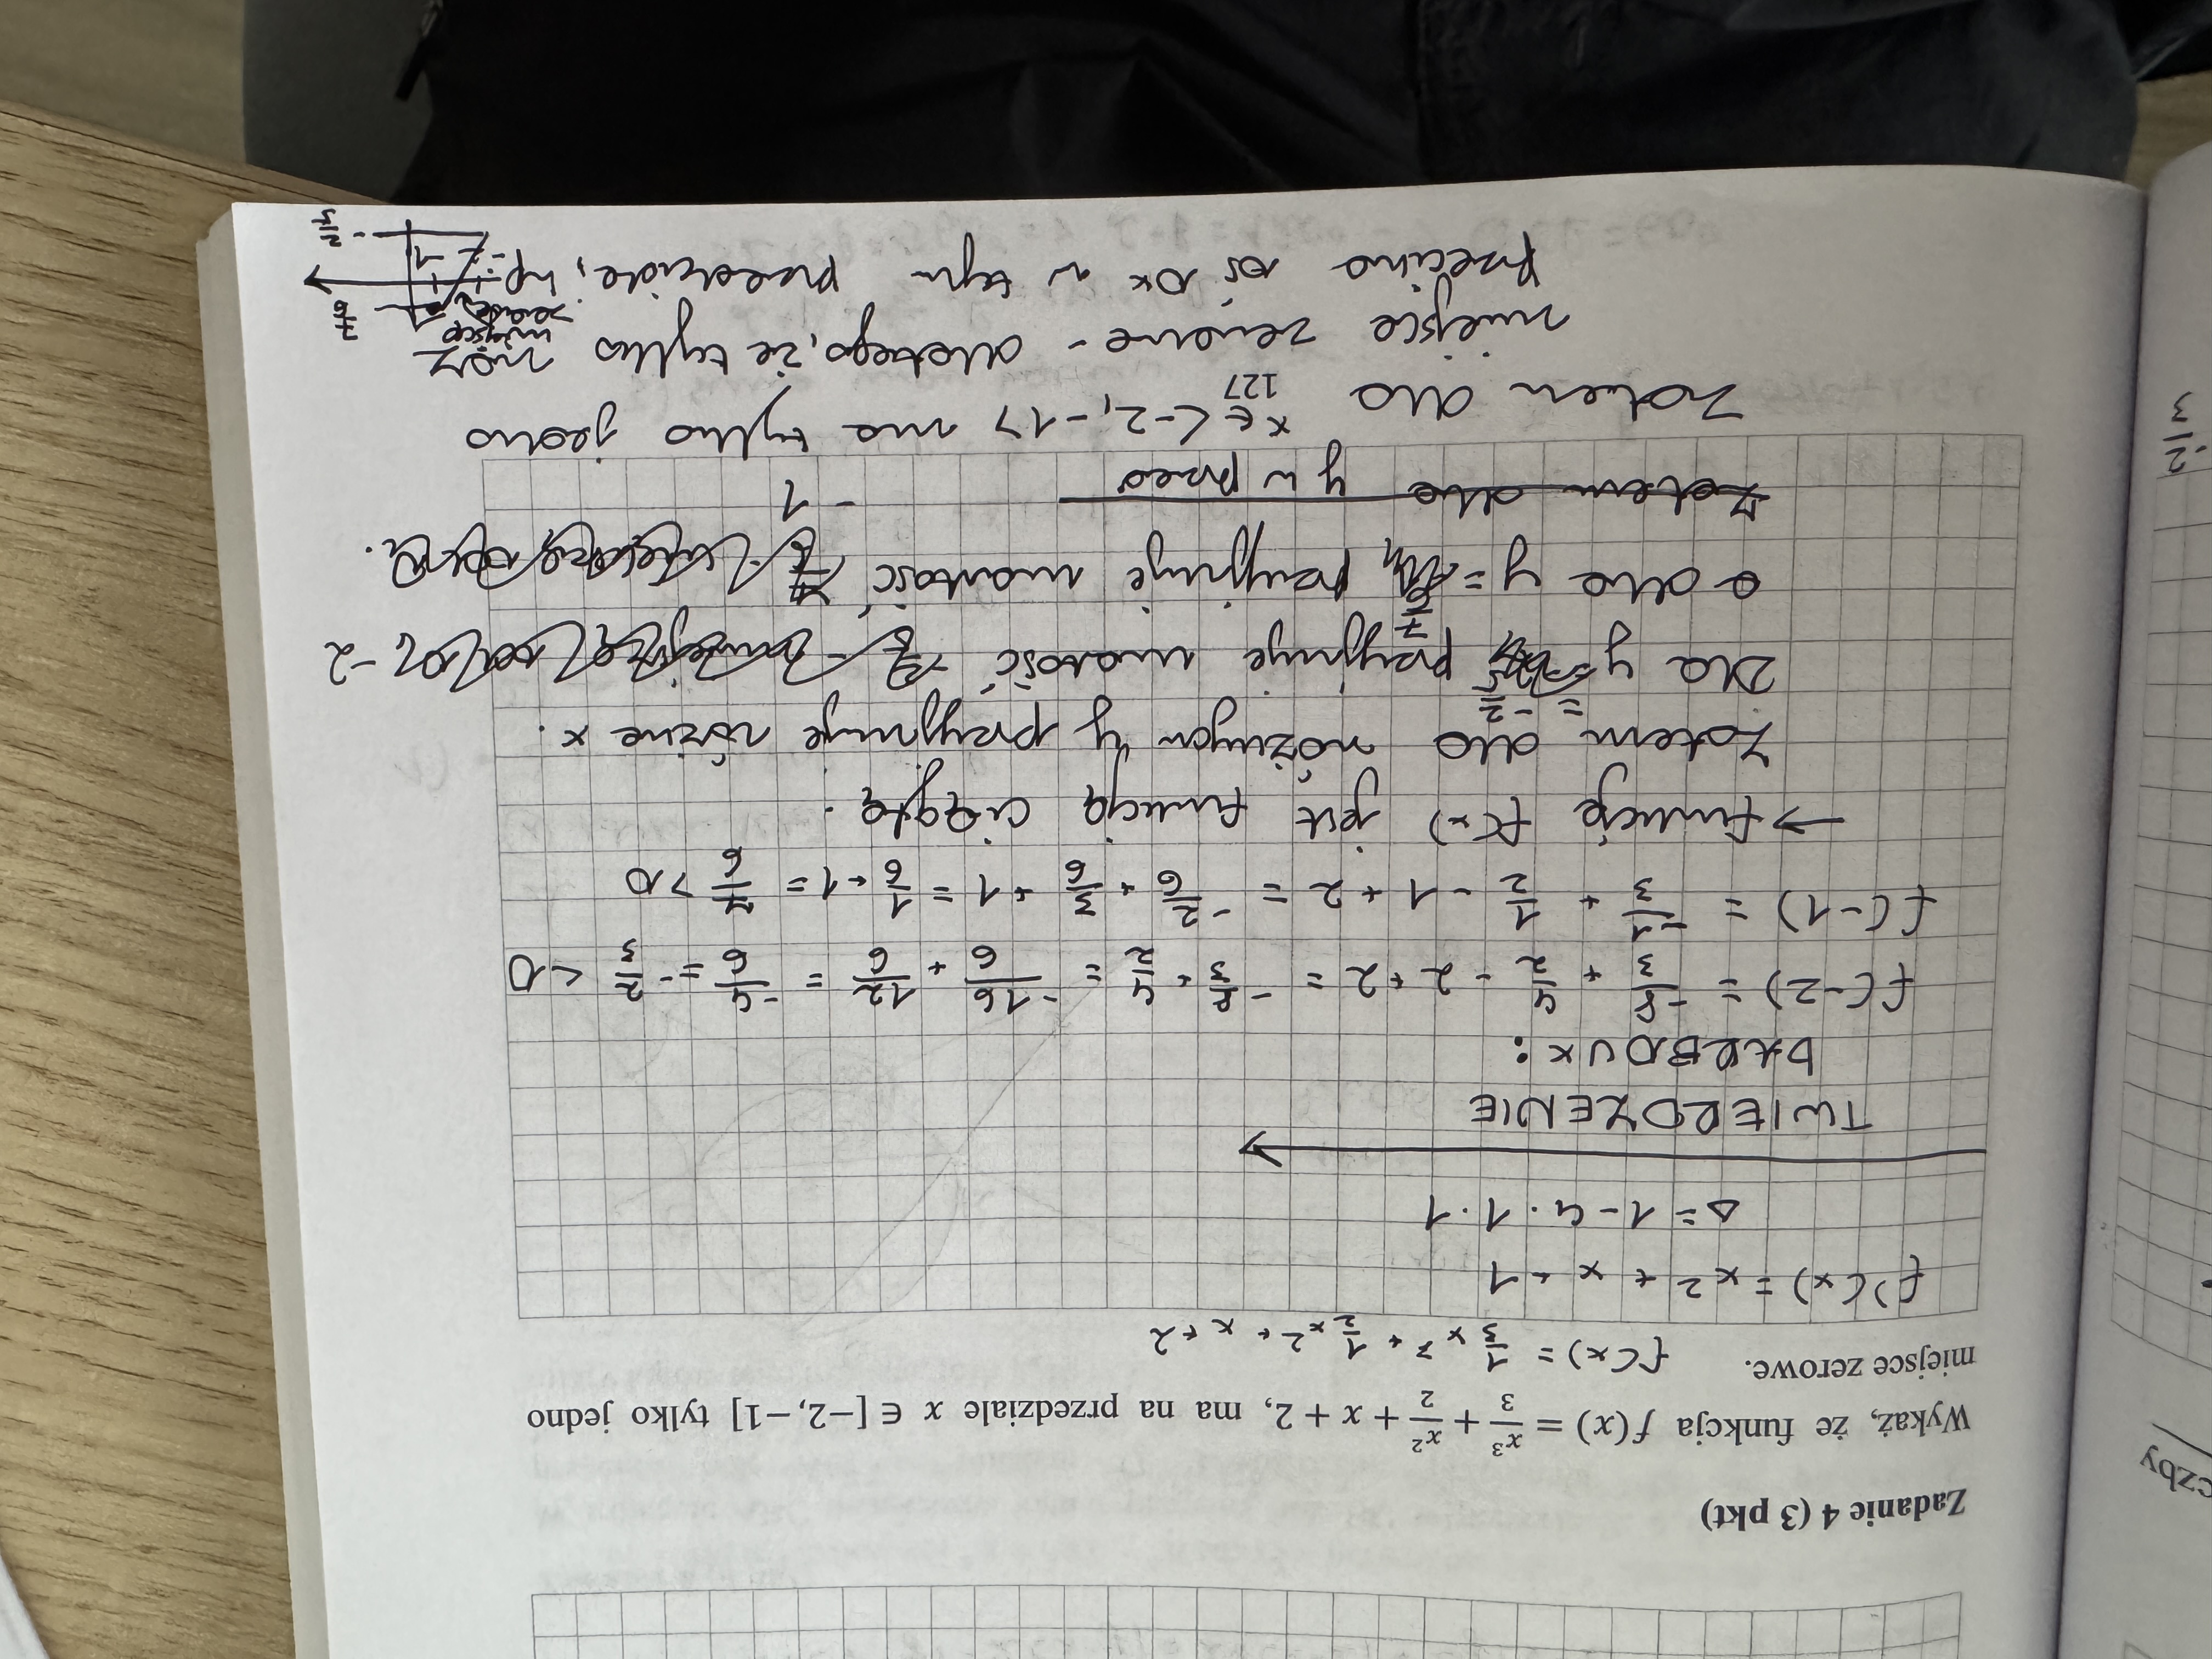 Zadanie 4 (3 pkt)
Wykaż, że funkcja f(x) = x³/3 + x²/2 + x + 2, ma na przedziale x ∈ [−2, −1] tylko jedno
miejsce zerowe. f(x) = 1/3 x³ + 1/2 x² + x + 2
f'(x) = x² + x + 1
Δ = 1 - 4 · 1 · 1
TWIERDZENIE
DARBOUX:
f(-2) = -8/3 + 4/2 - 2 + 2 = -8/3 + 4/2 = -16/6 + 12/6 = -4/6 = -2/3 < 0
f(-1) = -1/3 + 1/2 - 1 + 2 = -2/6 + 3/6 + 1 = 1/6 + 1 = 7/6 > 0
→ funkcja f(x) jest funkcją ciągłą.
Zatem dla różnych y przyjmuje różne x.
Dla y = -2/3 przyjmuje wartość -2
a dla y = 7/6 przyjmuje wartość
-1
Zatem dla y w przed
Zatem dla x ∈ <-2, -1> ma tylko jedno
127
miejsce zerowe - dlatego, że tylko raz
przecina oś OX w tym przedziale, np.
miejsce
zerowe
7/6
-1
-2/3
czby
2/3